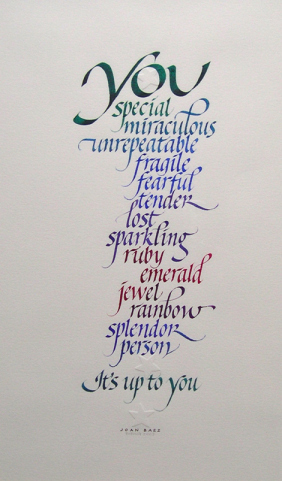 you
special
miraculous
unrepeatable
fragile
fearful
tender
lost
sparkling
ruby
emerald
jewel
rainbow
splendor
person
It's up to you
JOAN BAEZ